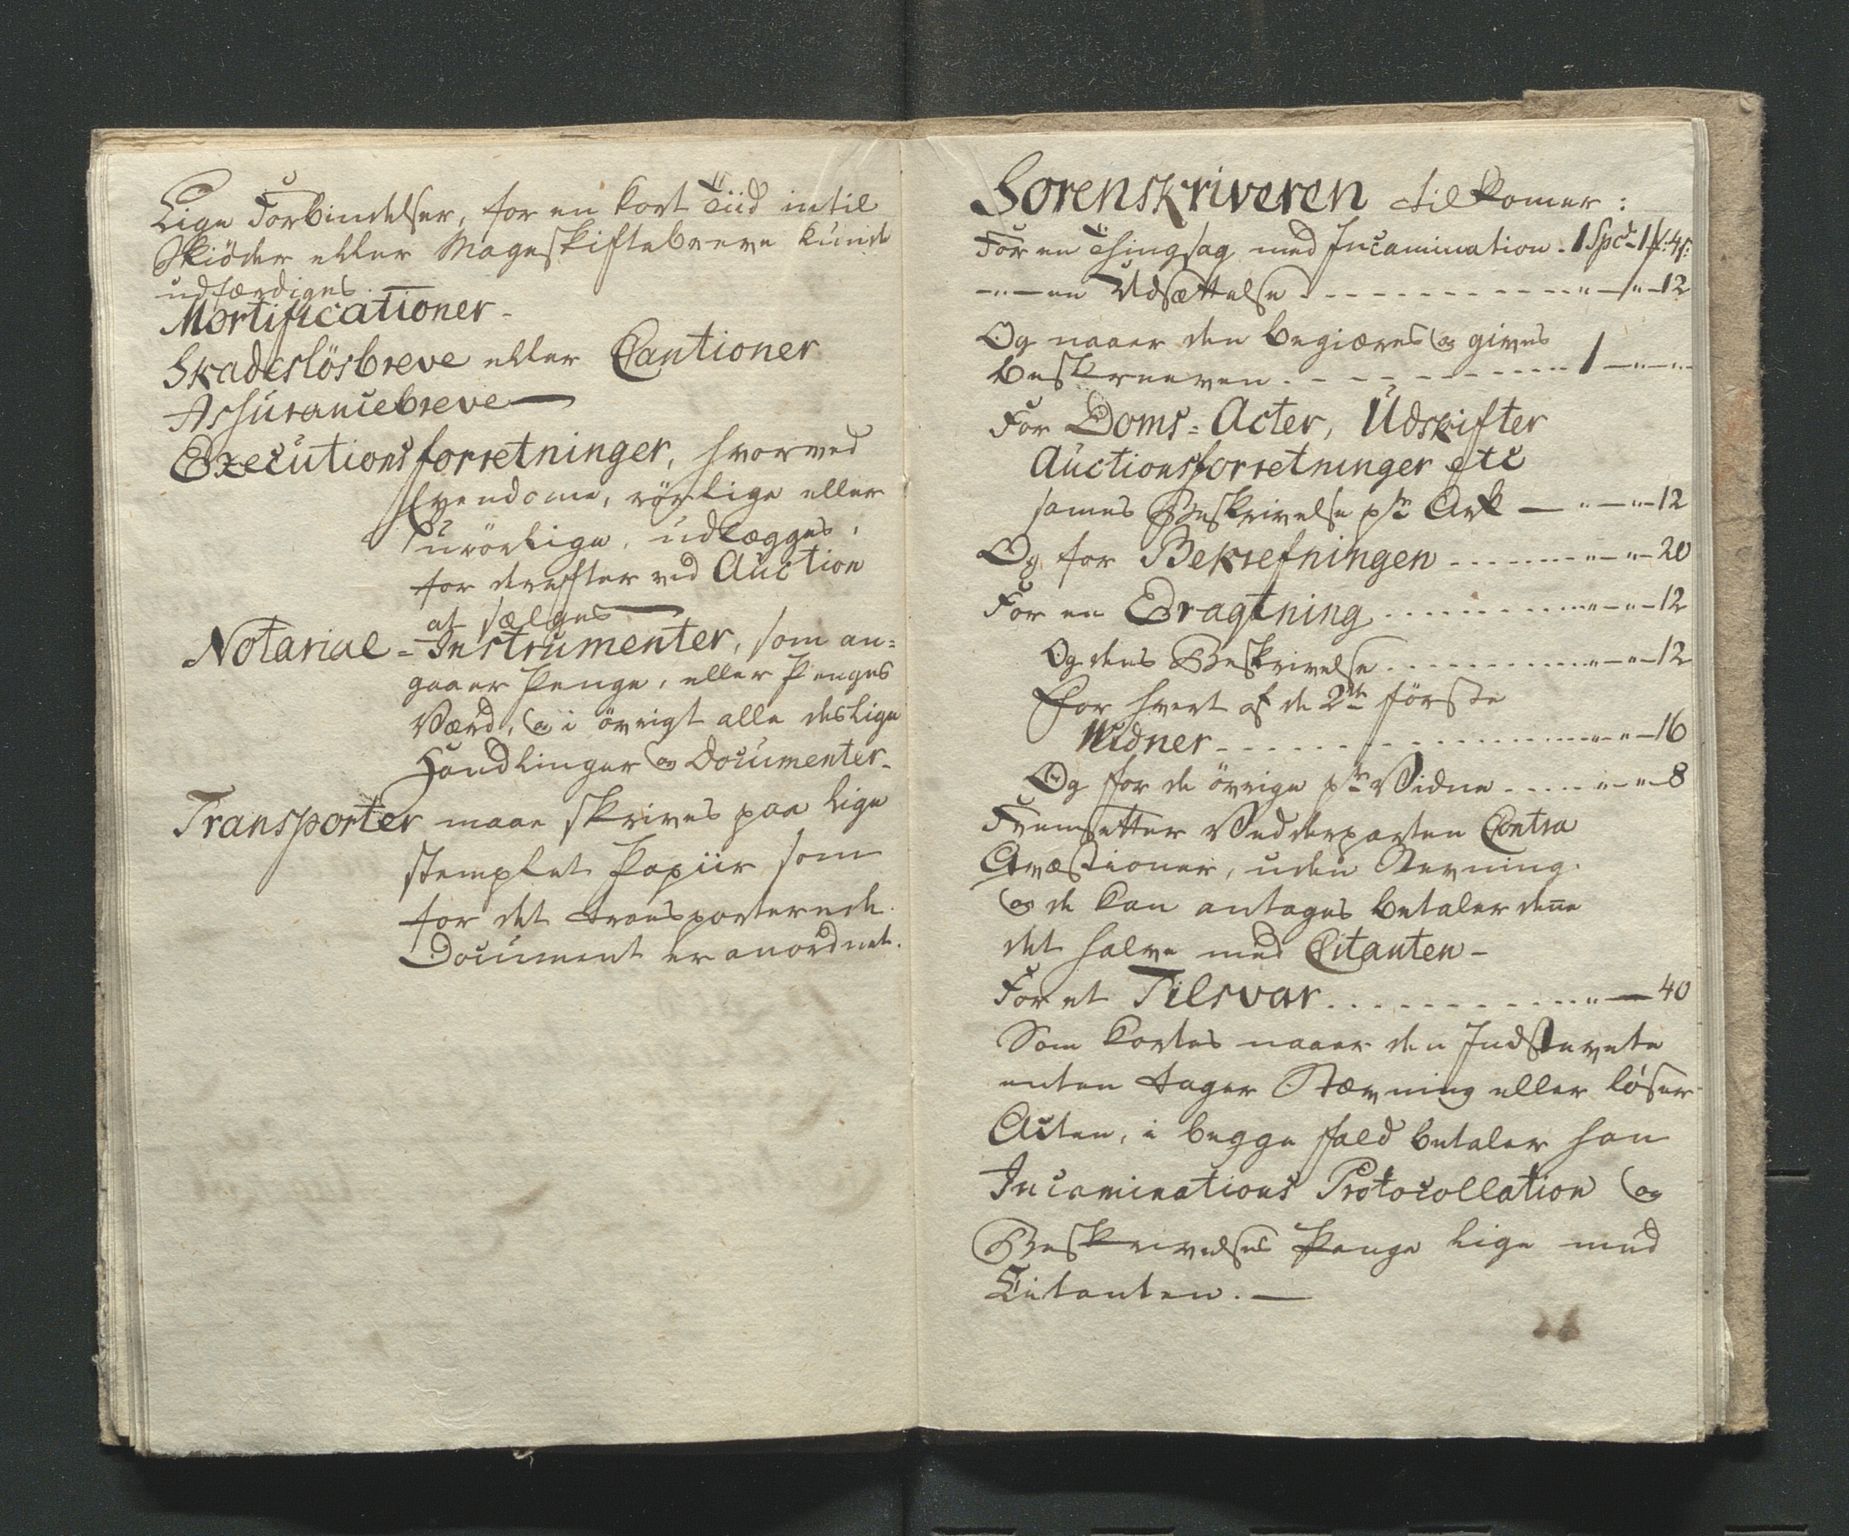 Lige Forbindelser, for en kort Tiid intil
Skiöder eller Mageskiftebreve kunde
udfærdiges. —
Mortificationer -
Skadeslösbreve eller Cautioner
Assurancebreve —
Executionsforretninger, hvorved
Eyendome, rörlige eller
urörlige, udlægges,
for derefter ved Auction
at sælges —
Notarial-Instrumenter, som an-
gaaer Penge, eller Penges
Værd, og i övrigt alle deslige
Handlinger og Documenter -
Transporter maae skrives paa lige
stemplet Papiir som
for det transporterede
Document er anordnet.
Sorenskriveren tilkomer:
For en Thingsag med Incamination - 1 Spcd - 1
— " — en Udsættelse - - - - " — " — 12
Og naaer den begiæres og gives
beskreeven - - - - 1 — " — "
For Doms-Acter, Udskifter
Auctionsforretninger etc
sames Beskrivelse pr Ark — " — " — 12
Og for Bekreftningen - - - - " — " — 20
For en Eragtning - - - - " — " — 12
Og dens Beskrivelse - - - - " — " — 12
For hvert af de 2de förste
Widner - - - - " — " — 16
Og for de övrige pr Vidne - - - - " — " — 8
Fremsetter Vedderparten Contra
Qvæstioner, uden Stevning
og de kan antages betaler dene
det halve med Citanten -
For et Tilsvar - - - - " — 40
Som kortes naaer den Indstevnte
enten tager Stævning eller löser
Acten, i begge fald betaler han
Incaminations Protocollation og
Beskrivelses Penge lige med
Citanten. —